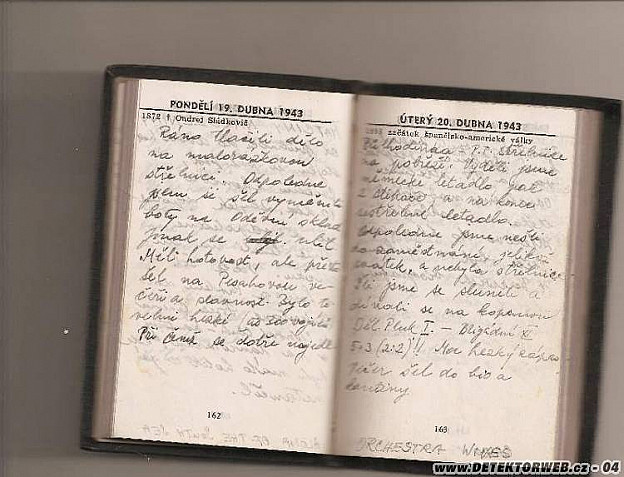 PONDĚLÍ 19. DUBNA 1943
1872 † Ondrej Sládkovič
Ráno tlačili dělo
na malorážkovou
střelnici. Odpoledne
jsem si šel vyměnit
boty na Oděvní sklad
jinak se nic.
Měli hotovost, ale přesto
šel na
čeři a slavnost. Bylo to
velmi hezké
Při čemž se dobře najedli
162
OF THE SOUTH SEA
ÚTERÝ 20. DUBNA 1943
začátek španělsko-americké války
střelnice
na pobřeží. Viděli jsme
německé letadlo jak
a na konec
sestřelené letadlo.
Odpoledne jsme nešli
do zaměstnání, jelikož
svátek, a nebyla střelnice.
Šli jsme se slunili a
dívali se na kopanou
Děl. Pluk I - Brigádní
5:3 (2:2)!! Moc hezký zápas.
Večer šel do bia a
kantýny
163
ORCHESTRA
WWW.DETEKTORWEB.cz - 04